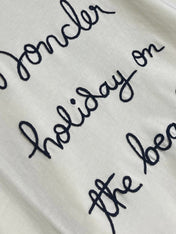 Moncler
holiday on
the bea